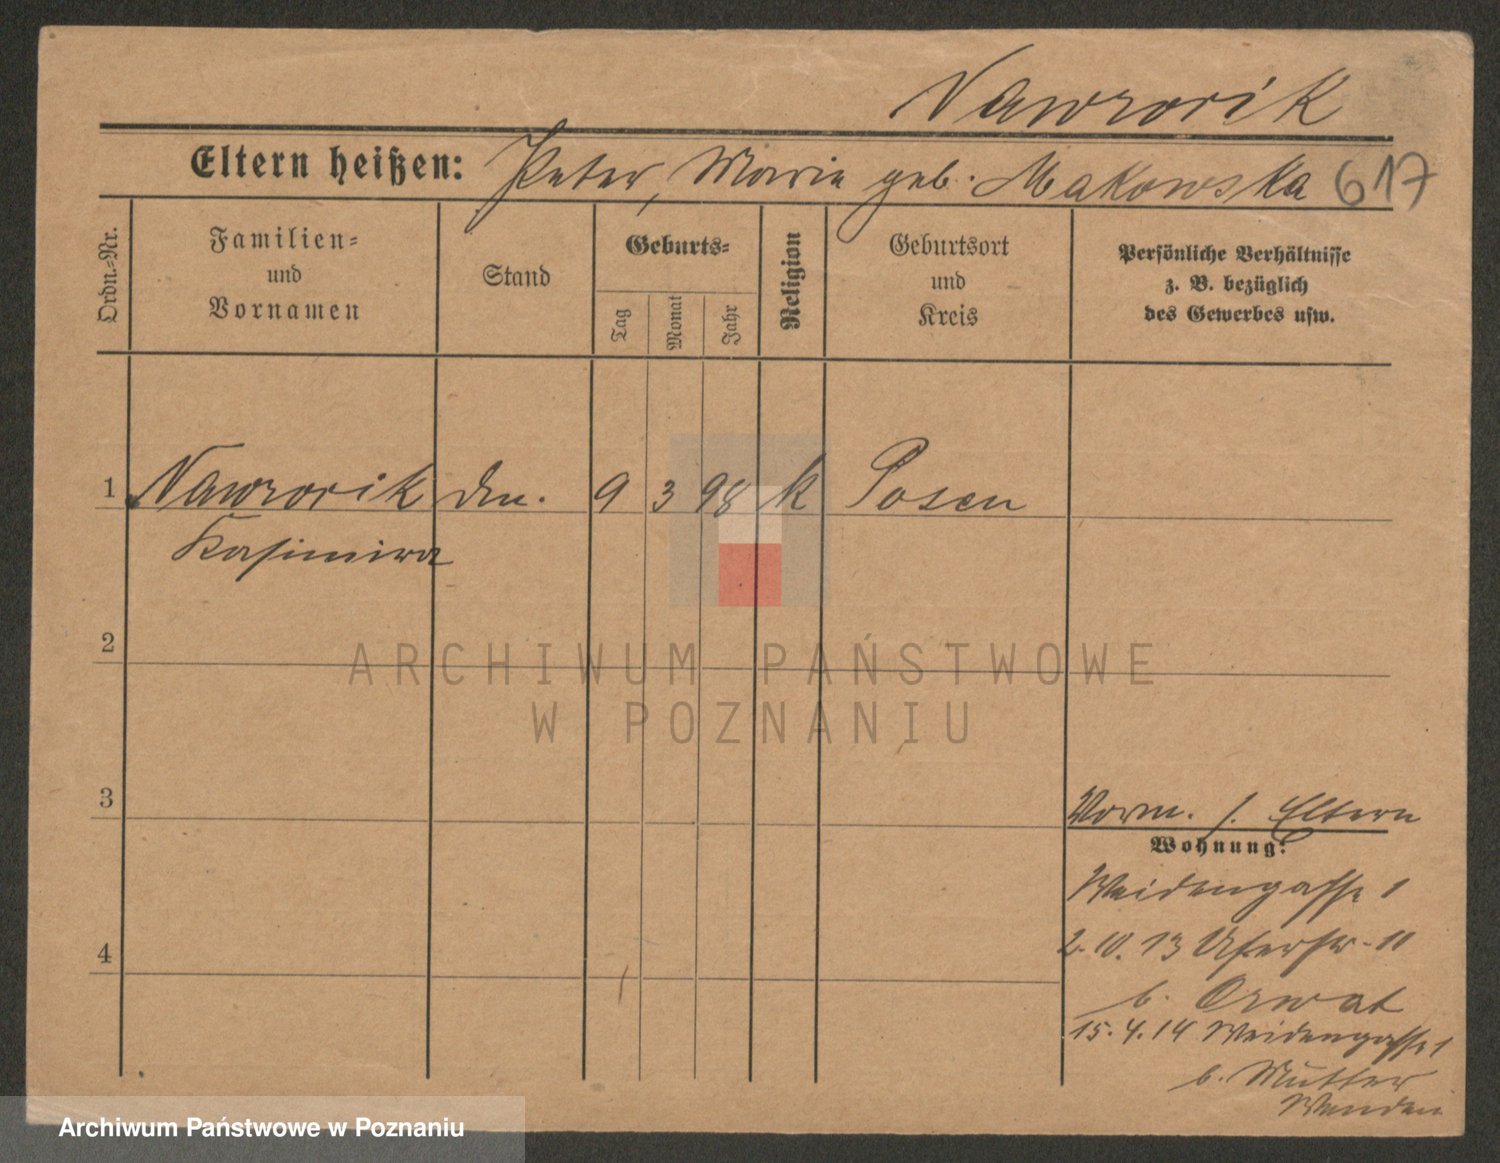 Nawrocik
Eltern heißen: Peter, Marie geb. Makowska 617
Ordn.-Nr.
Familien-
und
Vornamen
Stand
Geburts-
Tag
Monat
Jahr
Religion
Geburtsort
und
Kreis
Persönliche Verhältnisse
z. B. bezüglich
des Gewerbes usw.
1 Nawrocik 9 3 98 k Posen
Kasimira
2
3
4
Vorm. s. Eltern
Wohnung:
Weidengasse 1
2.10.13 Uferstr. 11
b. Orwat
15.4.14 Weidengasse 1
b. Mutter
ARCHIWUM PAŃSTWOWE
W POZNANIU
Archiwum Państwowe w Poznaniu